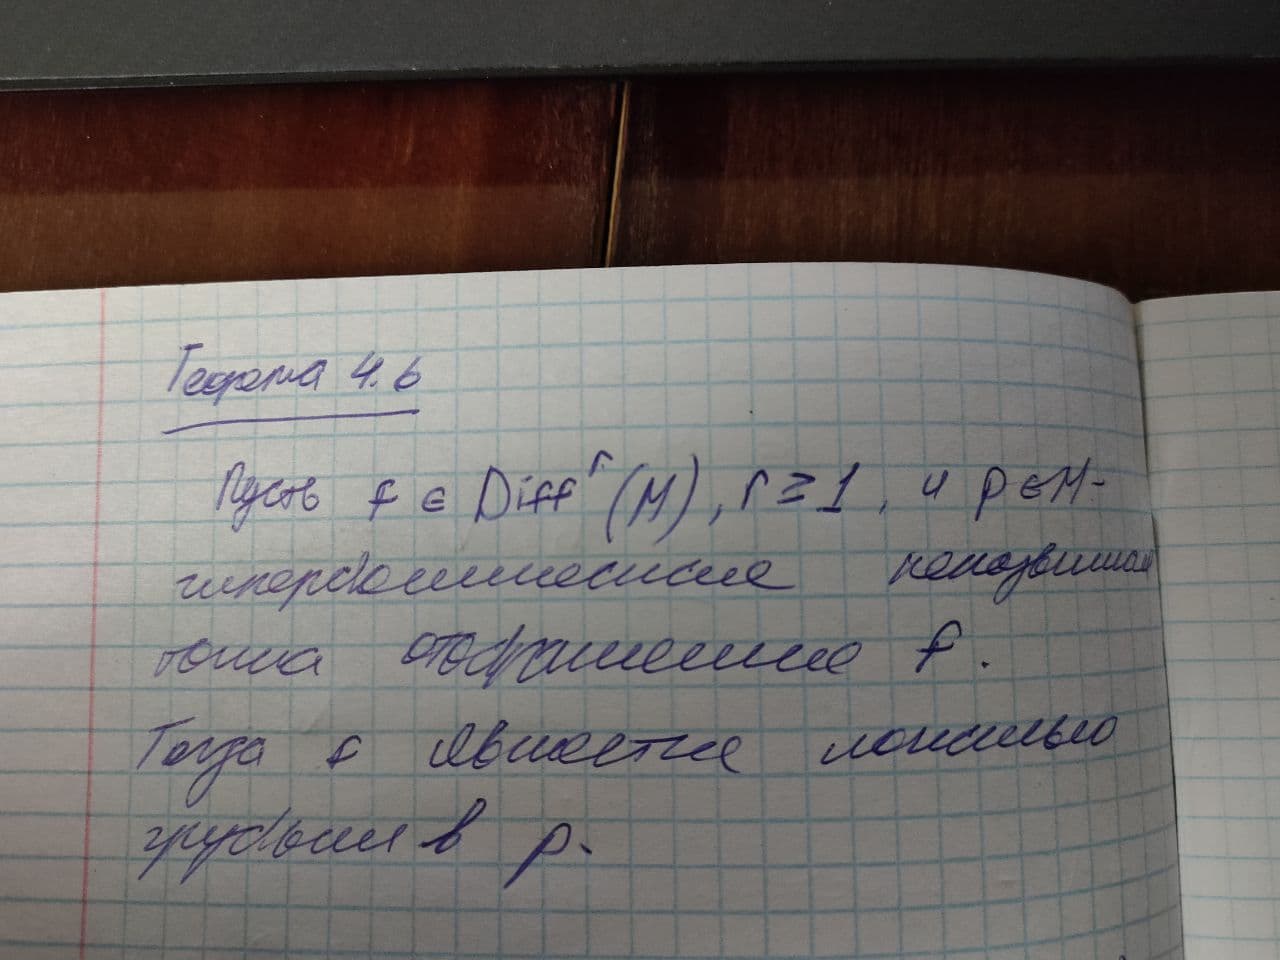 Теорема 4.6
Пусть f ∈ Diff^r (M), r ≥ 1, и p ∈ M -
гиперболическая неподвижная
точка отображения f.
Тогда f является локально
грубым в p.